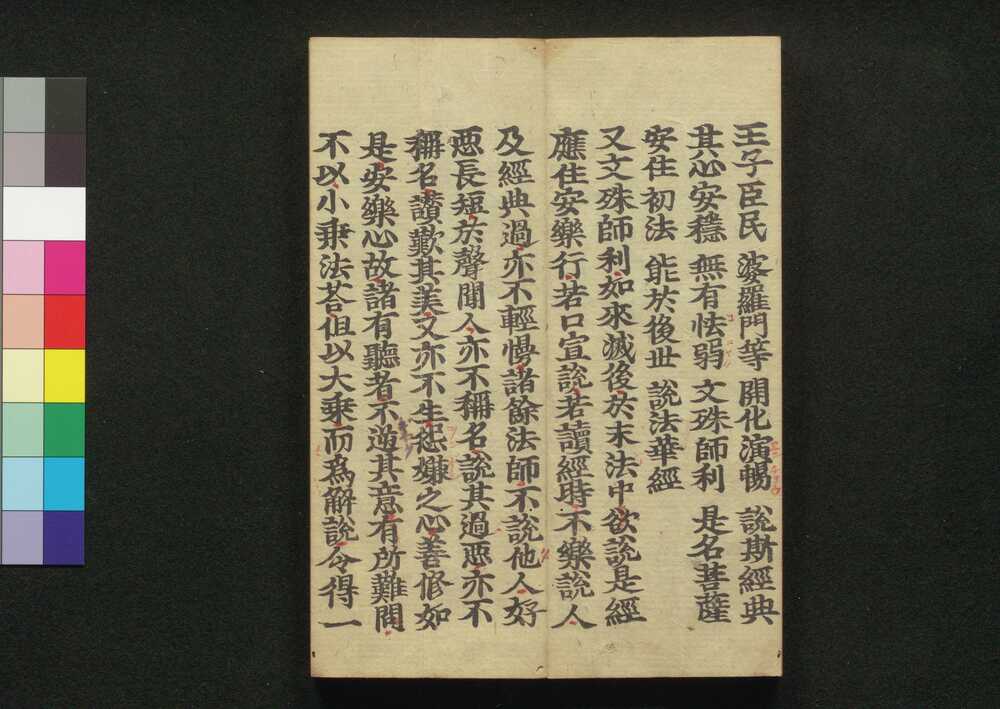 王子臣民 婆羅門等 開化演暢 説斯經典
其心安穩 無有怯弱 文殊師利 是名菩薩
安住初法 能於後世 説法華經
又文殊師利如來滅後於末法中欲説是經
應住安樂行若口宣説若讀經時不樂説人
及經典過亦不輕慢諸餘法師不説他人好
惡長短於聲聞人亦不稱名説其過惡亦不
稱名讃歎其美又亦不生怨嫌之心善修如
是安樂心故諸有聽者不逆其意有所難問
不以小乗法荅但以大乗而爲解説令得一